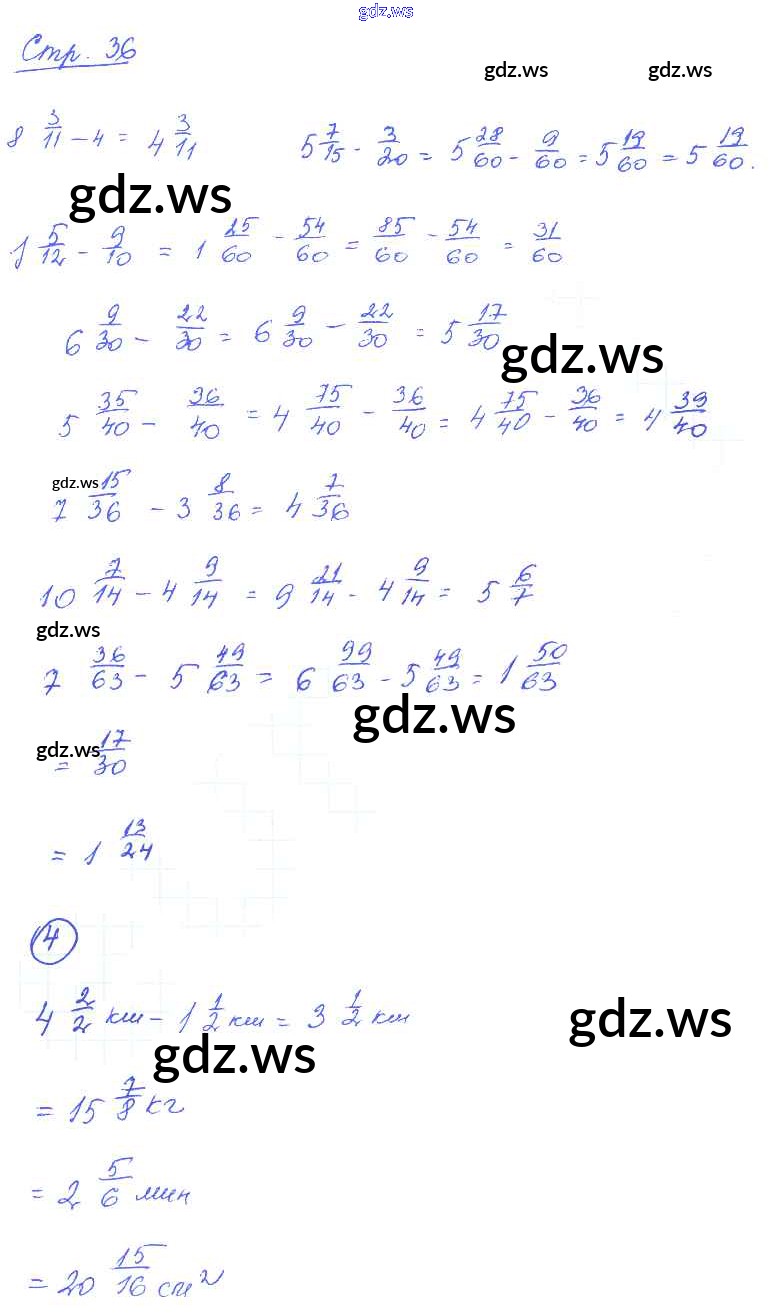 gdz.ws
Стр. 36
gdz.ws gdz.ws
8 3/11 - 4 = 4 3/11    5 7/15 - 3/20 = 5 28/60 - 9/60 = 5 19/60 = 5 19/60.
gdz.ws
1 5/12 - 9/10 = 1 25/60 - 54/60 = 85/60 - 54/60 = 31/60
6 9/30 - 22/30 = 6 9/30 - 22/30 = 5 17/30
gdz.ws
5 35/40 - 36/40 = 4 75/40 - 36/40 = 4 75/40 - 36/40 = 4 39/40
gdz.ws
7 15/36 - 3 8/36 = 4 7/36
10 7/14 - 4 9/14 = 9 21/14 - 4 9/14 = 5 6/7
gdz.ws
7 36/63 - 5 49/63 = 6 99/63 - 5 49/63 = 1 50/63
gdz.ws
gdz.ws
= 17/30
= 1 13/24
4
4 2/2 км - 1 1/2 км = 3 1/2 км
gdz.ws
gdz.ws
= 15 7/8 кг
= 2 5/6 мин
= 20 15/16 см²